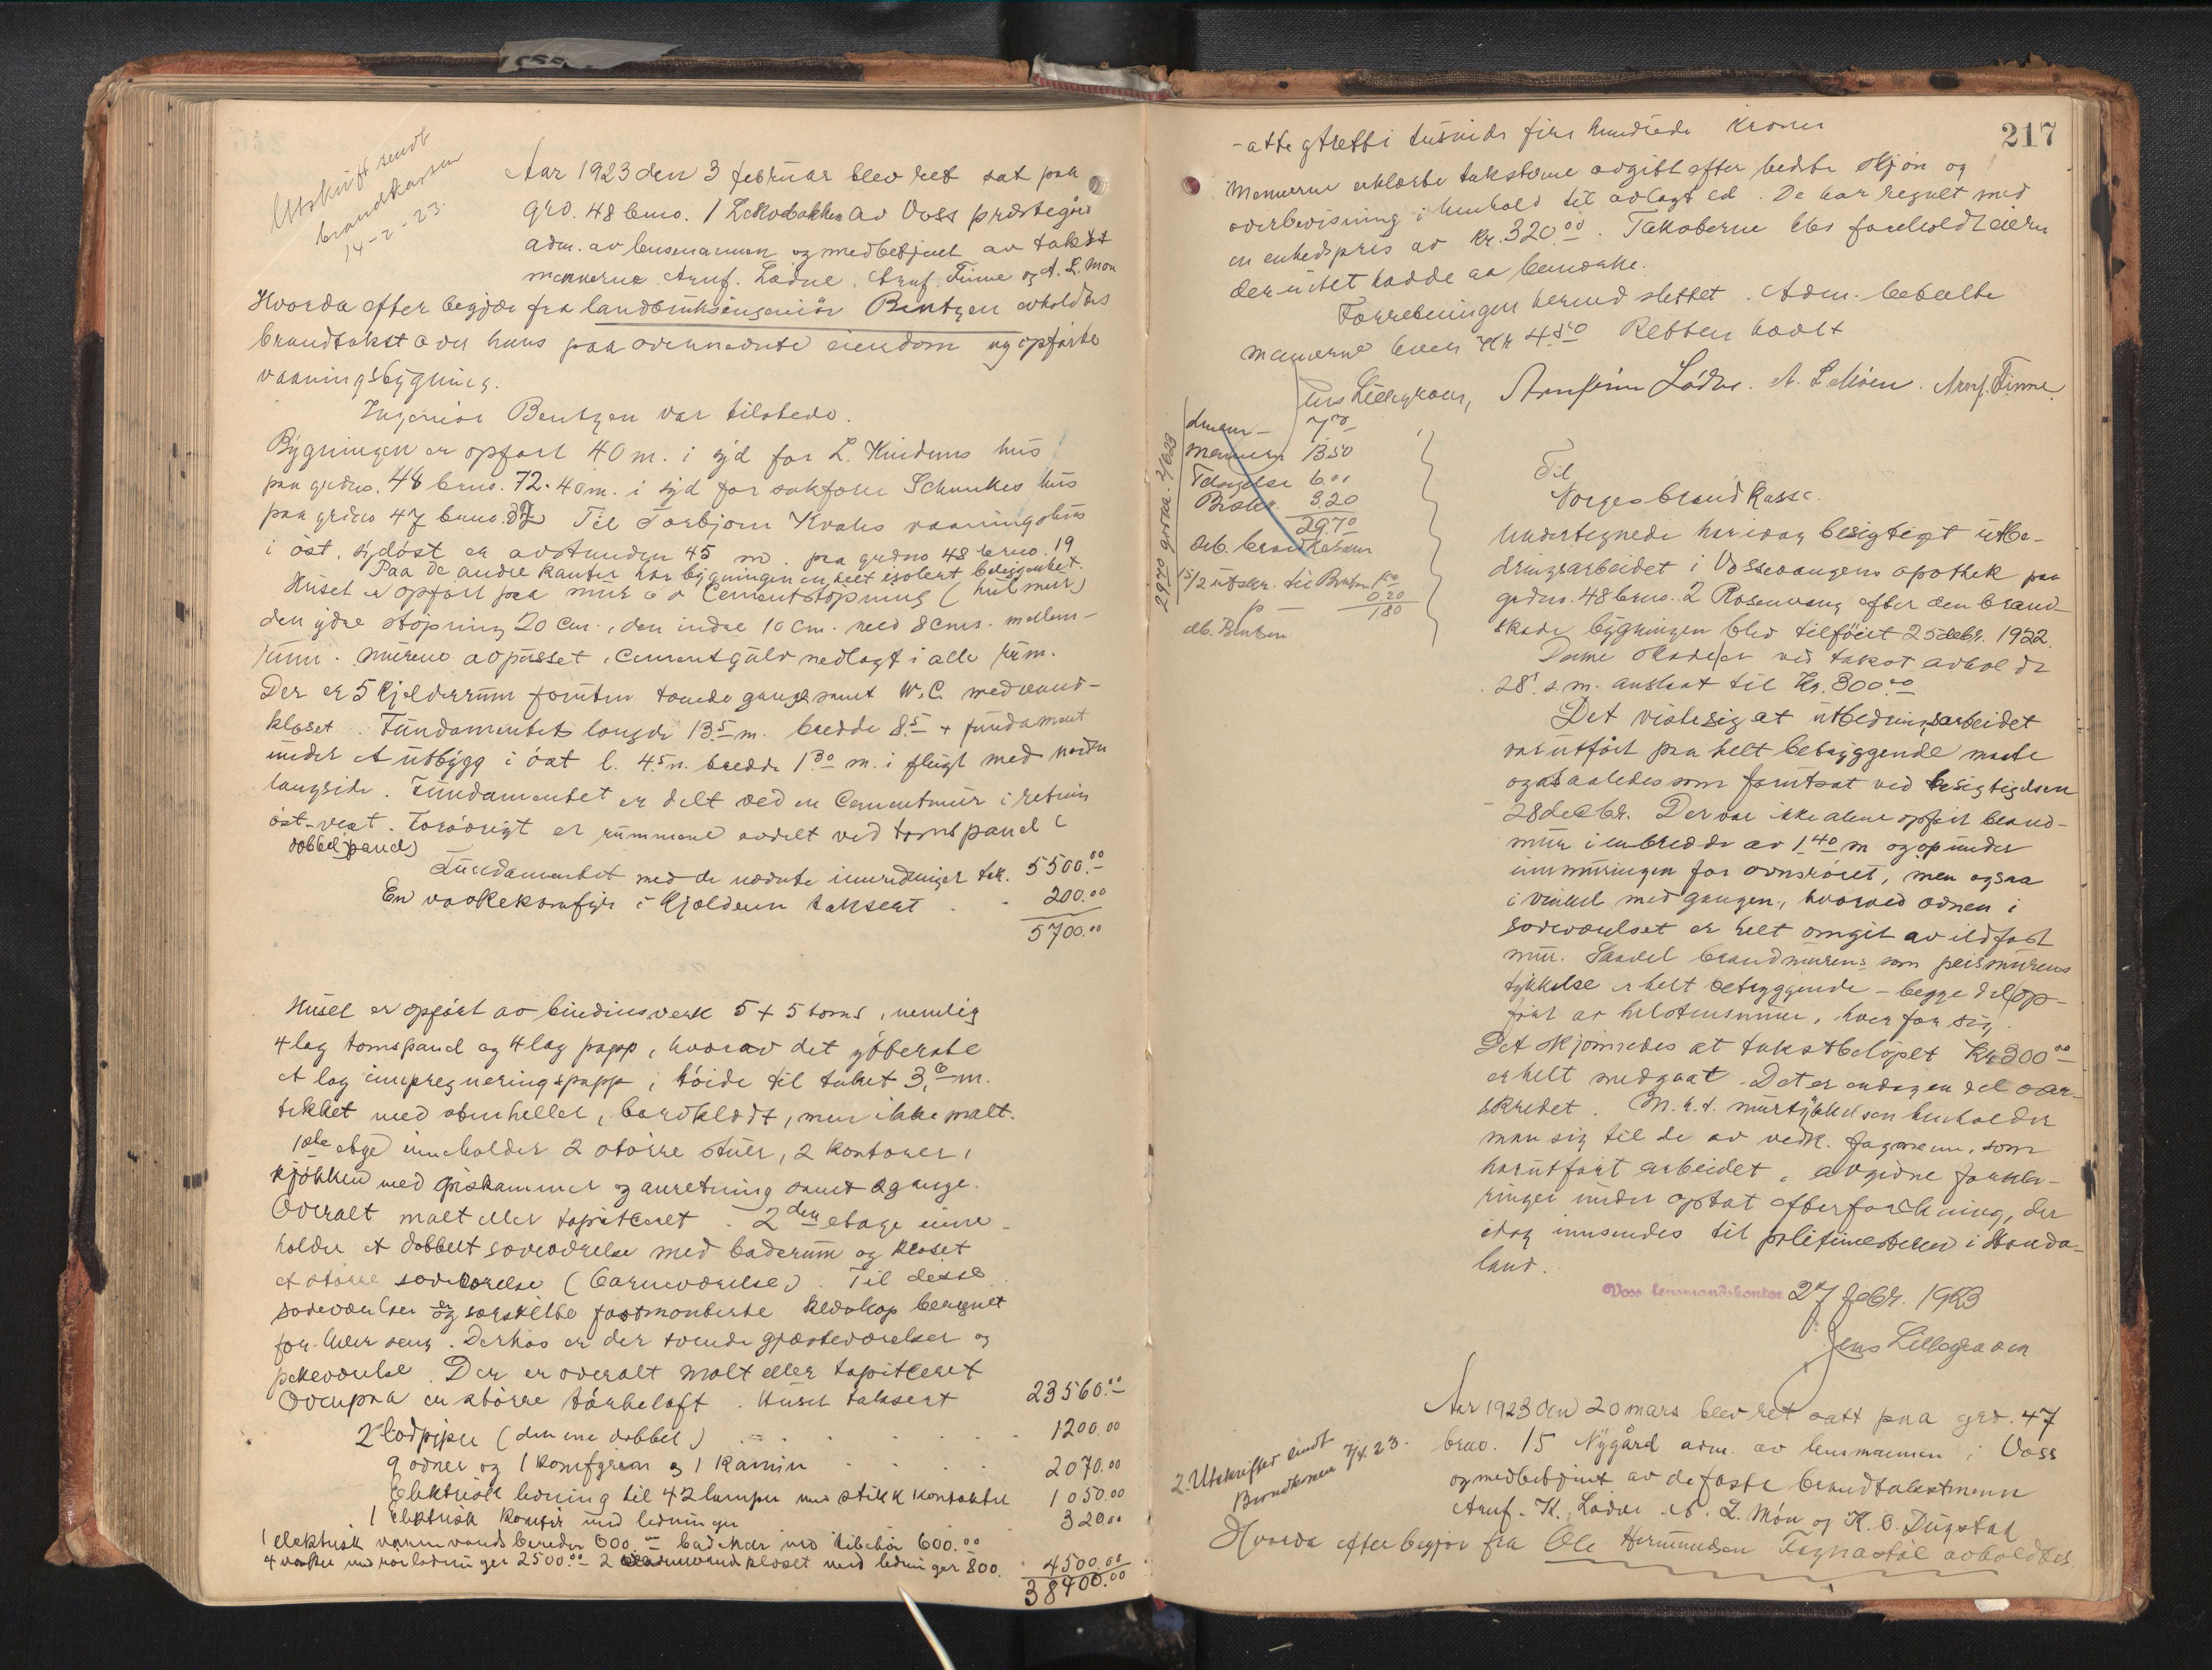 Utskrift sendt
brandkassen
14-2-23.
Aar 1923 den 3 februar blev ret sat paa
grd. 48 bno. 1 Lekvebakken av Voss præstegård
adm. av lensmannen og medbetjent av takst
mennerne Arnf. Lødve, Arnf. Finne og A. L. Møn
Hvorda efter begjær fra landbruksingeniør Bentzen avholdes
brandtakst over hans paa ovennævnte eiendom nyopførte
vaaningsbygning.
Ingeniør Bentzen var tilstede.
Bygningen er opført 40 m. i syd for L. Kindems hus
paa grdno. 48 bno. 72. 40 m. i syd for sakfører Schunkes hus
paa grdno 47 bno. Til Torbjørn Kvales vaaningshus
i øst, sydøst er avstanden 45 m. paa grdno 48 bno. 19
Paa de andre kanter har bygningen en helt isolert beliggenhet.
Huset er opført paa mur av Cementstøpning (hulmur)
den ydre støpning 20 cm., den indre 10 cm. med 8 cms. mellem-
rum. Murene avpusset, cementgulv nedlagt i alle rum.
Der er 5 kjelderrum foruten tvende gange samt W.C. med vand-
kloset. Fundamentets længde 13.5 m. bredde 8.5 + fundament
under et utbygg i øst l. 4.5 m. bredde 1.30 m. i flugt med nordre
langside. Fundamentet er delt ved en Cementmur i retning
øst-vest. Forøvrigt er rummene avdelt ved tomspanel (
dobbel panel)
Fundamentet med de nævnte innredninger tak. 5500.00
En vaskekomfyr i Kjelderen taksert - 200.00
5700.00
Huset er opført av bindingsverk 5 + 5 toms, nemlig
4 lag tomspanel og 4 lag papp, hvorav det ytterste
et lag impregneringspapp, høide til taket 3.6 m.
tekket med stenheller, bordklædt, men ikke malt.
1ste etage inneholder 2 større stuer, 2 kontorer,
kjøkken med spiskammer og anretning samt 2 gange.
Overalt malt eller tapiteret. 2den etage inne-
holder et dobbelt soveværelse med baderum og kloset
et større soveværelse (barneværelse). Til disse
soveværelser er særskilte fastmonterte klæskap beregnet
for hver seng. Derhos er der tvende gjæsteværelser og
pikeværelse. Der er overalt malt eller tapitceret
Ovenpaa en større tørkeloft. Huset taksert 23560.00
2 lodpiper (den ene dobbel) 1200.00
9 ovner og 1 komfyr og 1 Kamin 2070.00
Elektrisk ledning til 42 lamper med stikk kontakter 1050.00
1 Elektrisk komfyr med ledninger 320.00
1 elektrisk varmvandsbereder 600.00 badekar med tilbehør 600.00
4 vasker med rørledninger 2500.00 2 vandkloset med ledninger 800. 4500.00
38400.00
217
-otte og tretti tusinde fire hundrede kroner
Mennerne erklærte taksterne avgitt efter bedste skjøn og
overbevisning i henhold til avlagt ed. De har regnet med
en enhedspris av kr. 320.00. Takstene blev foreholdt eieren
der intet hadde aa bemerke.
Forretningen hermed sluttet. Adm. betalte
mennerne hver Kr 4.50 Retten hævet
Jens Lillegraven, Arnfinn Lødve. A. L. Møen. Arnf. Finne.
Lensm - 7.00
Mennene 13.50
Tdagelse 6.00
Brskr. 3.20
29.70
deb. brandkassen
29.70
15/2 utskr. til Bentzen 1.60
p - 0.20
1.80
deb. Bentzen
Til
Norges brandkasse.
Undertegnede har idag besigtiget utbe-
dringsarbeidet i Vossevangens apothek paa
grdno. 48 bno. 2 Rosenvang efter den brand-
skade bygningen blev tilføiet 25 debr. 1922.
Denne skade er ved takst avholdt
28. s.m. anslaat til Kr. 300.00
Det viste sig at utbedringsarbeidet
var utført paa helt betryggende maate
og saaledes som forutsat ved besigtigelsen
28 decbr. Der var ikke alene opført brand-
mur i en bredde av 1.40 m og op under
innmuringen for ovnsrøret, men ogsaa
i vinkel med gangen, hvorved ovnen i
soveværelset er helt omgit av ildfast
mur. Saavel brandmurens som peismurens
tykkelse er helt betryggende - begge del op-
ført av helstensmur, hver for sig.
Det skjønnedes at takstbeløpet Kr. 300.00
er helt medgaat. Det er endogen del over-
skredet. M.h.t. murtykkelsen henholder
man sig til de av vedk. fagmenn, som
har utført arbeidet, avgivne forkla-
ringer under optat efterforskning, der
idag innsendes til politimesteren i Horda-
land.
Voss lensmandskontor 27 febr. 1923
Jens Lillegraven
2. Utskrifter sendt
Brandkassen 7/4 23.
Aar 1923 den 20 mars blev ret satt paa grd. 47
bno. 15 Nygård adm. av lensmannen i Voss
og medbetjent av de faste brandtakstmenn
Arnf. K. Lødve, A. L. Møn og K. O. Dugstad
Hvorda efter begjær fra Ole Hermundsen Fagnastøl avholdtes.